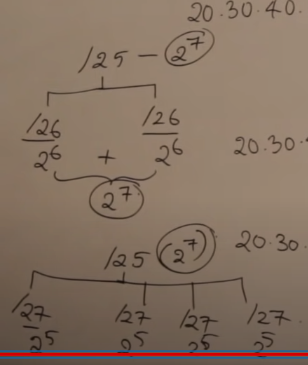 20.30.40.
/25 - 2^7
/26 /26
2^6 + 2^6
2^7
20.30.
/25 (2^7) 20.30.
/27 /27 /27 /27
2^5 2^5 2^5 2^5